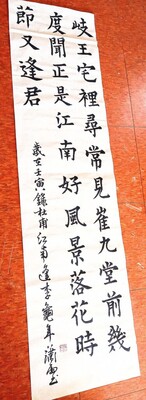 岐王宅裡尋常見崔九堂前幾
度聞正是江南好風景落花時
節又逢君
歲次壬寅錄杜甫江南逢李龜年